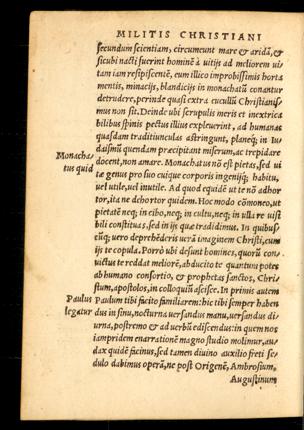 MILITIS CHRISTIANI
secundum scientiam, circumeunt mare & aridã, &
sicubi nacti fuerint hominẽ à uitijs ad meliorem ui
tam iam resipiscentẽ, eum illico improbissimis horta
mentis, minacijs, blandicijs in monachatũ conantur
detrudere, perinde quasi extra cucullũ Christianis/
mus non sit. Deinde ubi scrupulis meris et inextrica
bilibus spinis pectus illius expleuerint, ad humanas
quasdam traditiunculas astringunt, planeq; in Iu
daismũ quendam præcipitant miserum, ac trepidare
Monacha/
tus quid
docent, non amare. Monachatus nõ est pietas, sed ui
tæ genus pro suo cuique corporis ingenijq; habitu,
uel utile, uel inutile. Ad quod equidẽ ut te nõ adhor
tor, ita ne dehortor quidem. Hoc modo cõmoneo, ut
pietatẽ neq; in cibo, neq; in cultu, neq; in ulla re uisi
bili constituas, sed in ijs quæ tradidimus. In quibus/
cũq; uero deprehẽderis uerã imaginem Christi, cum
ijs te copula. Porrò ubi desunt homines, quorũ con/
uictus te reddat meliorẽ, abducito te quantum potes
ab humano consortio, & prophetas sanctos, Chri/
stum, apostolos, in colloquiũ ascisce. In primis autem
Paulus
legatur
Paulum tibi facito familiarem: hic tibi semper haben
dus in sinu, nocturna uersandus manu, uersandus di
urna, postremo & ad uerbũ ediscendus: in quem nos
iampridem enarrationẽ magno studio molimur, au/
dax quidẽ facinus, sed tamen diuino auxilio freti se/
dulo dabimus operã, ne post Origenẽ, Ambrosium,
Augustinum